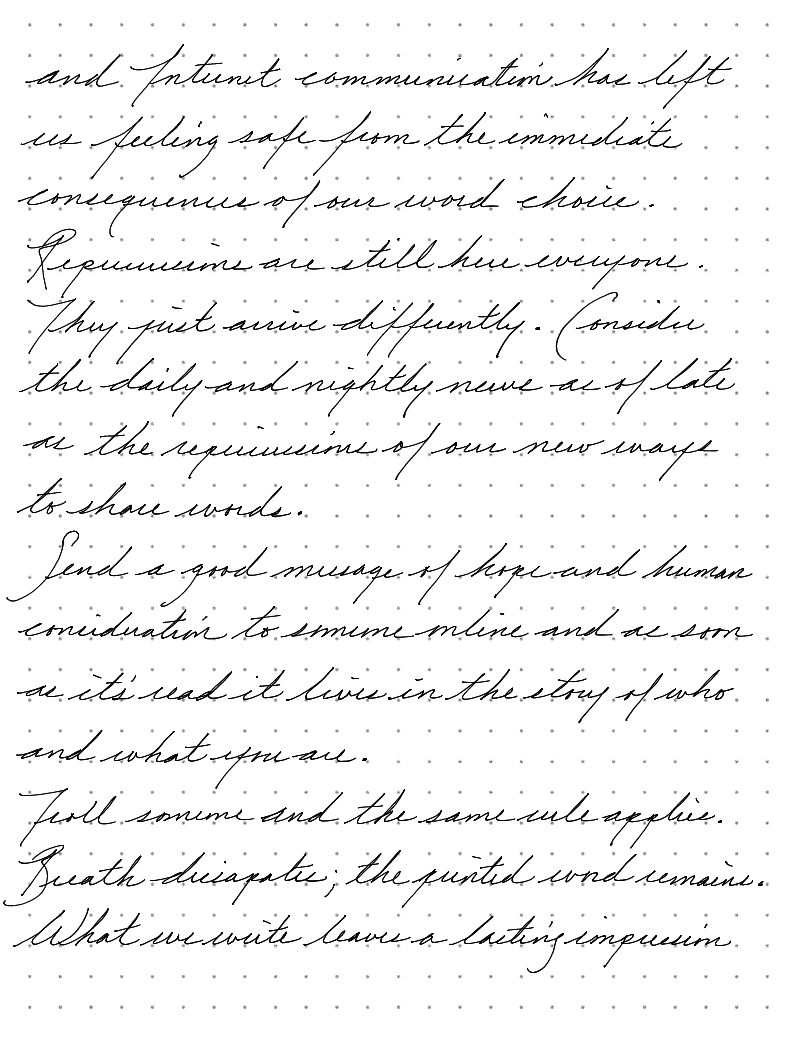 and Internet communication has left
us feeling safe from the immediate
consequences of our word choice.
Repercussions are still here everyone.
They just arrive differently. Consider
the daily and nightly news as of late
as the repercussions of our new ways
to share words.
Send a good message of hope and human
consideration to someone online and as soon
as it's read it lives in the story of who
and what you are.
Troll someone and the same rule applies.
Breath dissapates; the printed word remains.
What we write leaves a lasting impression